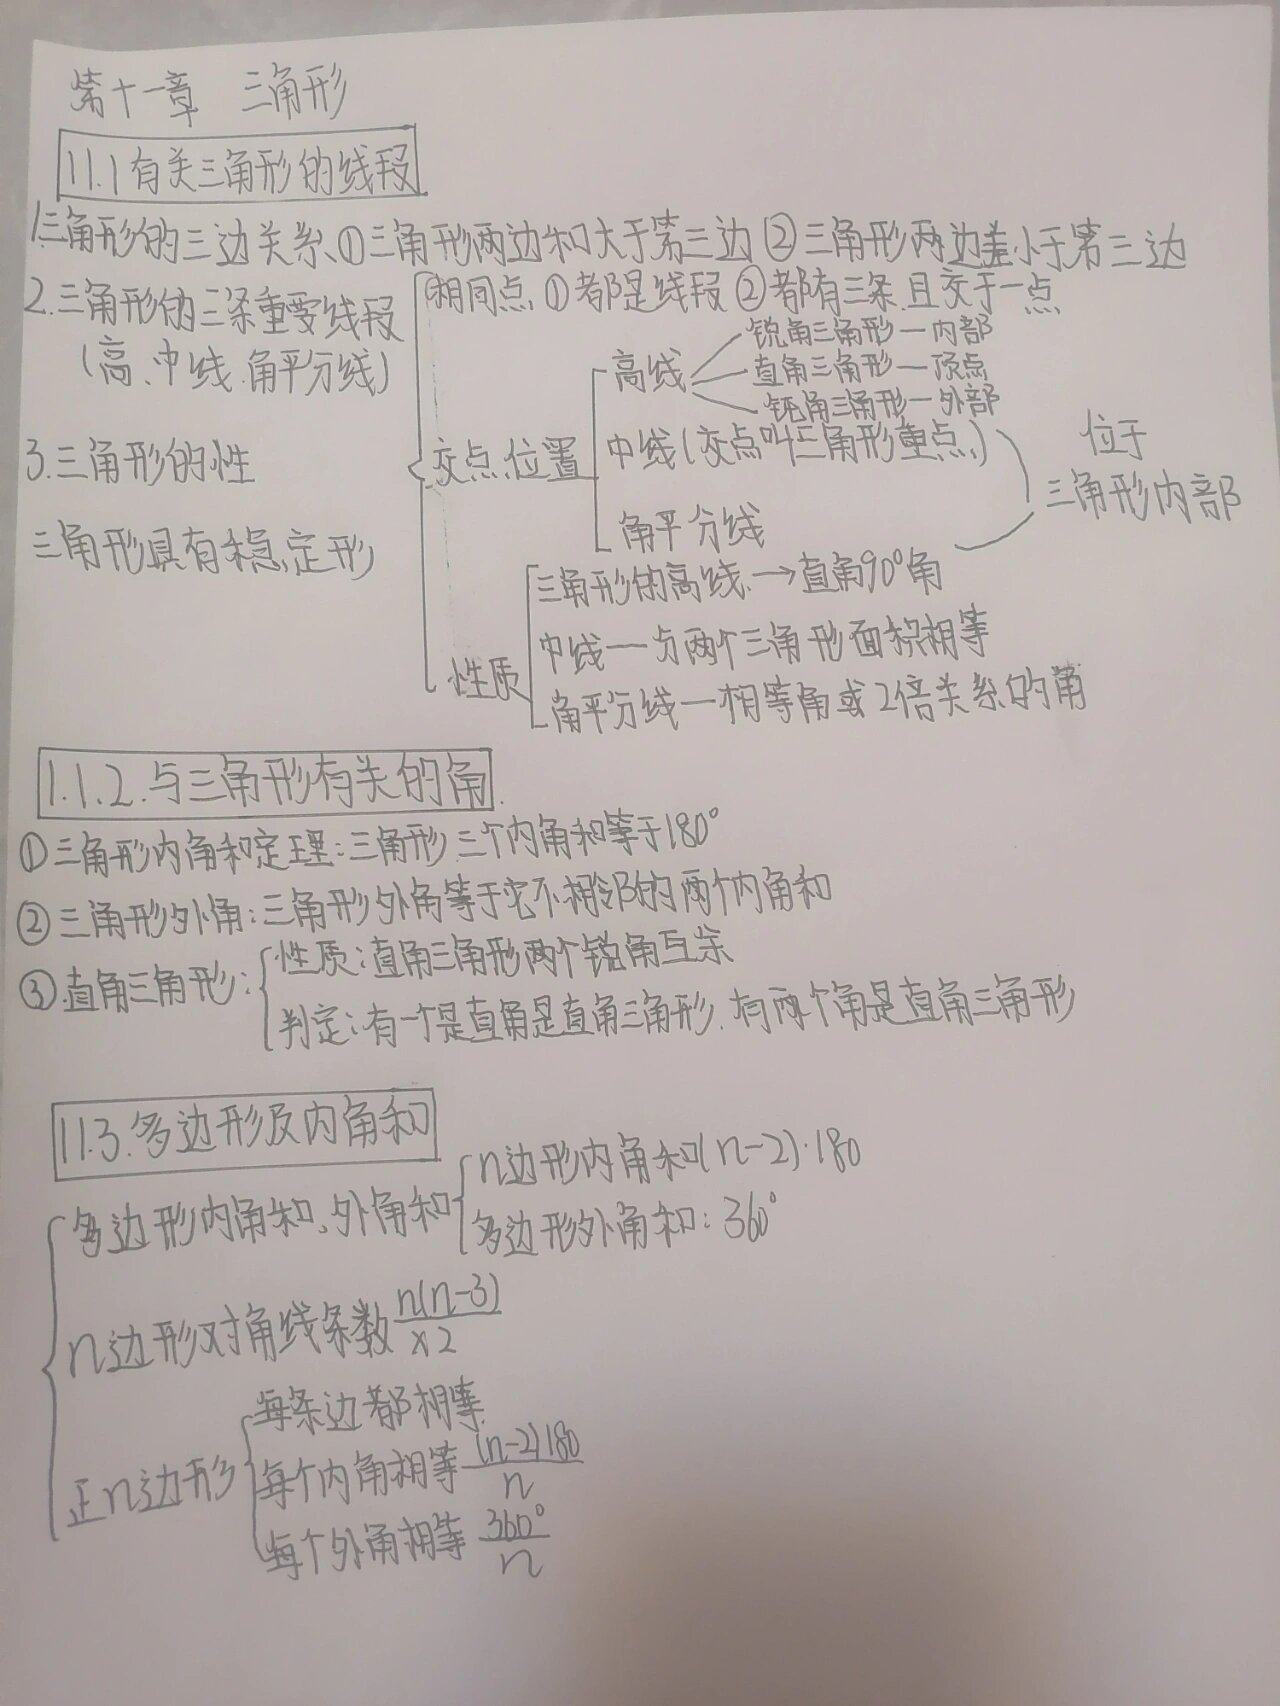 第十一章 三角形
11.1有关三角形的线段
1三角形的三边关系、①三角形两边和大于第三边②三角形两边差小于第三边
2.三角形的三条重要线段
(高、中线.角平分线)
相同点.①都是线段②都有三条.且交于一点
交点位置
高线
锐角三角形—内部
直角三角形—顶点
钝角三角形—外部
中线(交点叫三角形重点)
角平分线
位于
三角形内部
性质
三角形的高线.→直角90°角
中线—两个三角形面积相等
角平分线—相等角或2倍关系的角
3.三角形的性
三角形具有稳定形
1.1.2.与三角形有关的角.
①三角形内角和定理:三角形三个内角和等于180°
②三角形外角:三角形外角等于它不相邻的两个内角和
③直角三角形:
性质:直角三角形两个锐角互余
判定:有一个是直角是直角三角形.有两个角是直角三角形
11.3.多边形及内角和
多边形内角和、外角和
n边形内角和(n-2)·180
多边形外角和:360°
n边形对角线条数 n(n-3)/×2
正n边形
每条边都相等
每个内角相等 (n-2)180/n
每个外角相等 360°/n